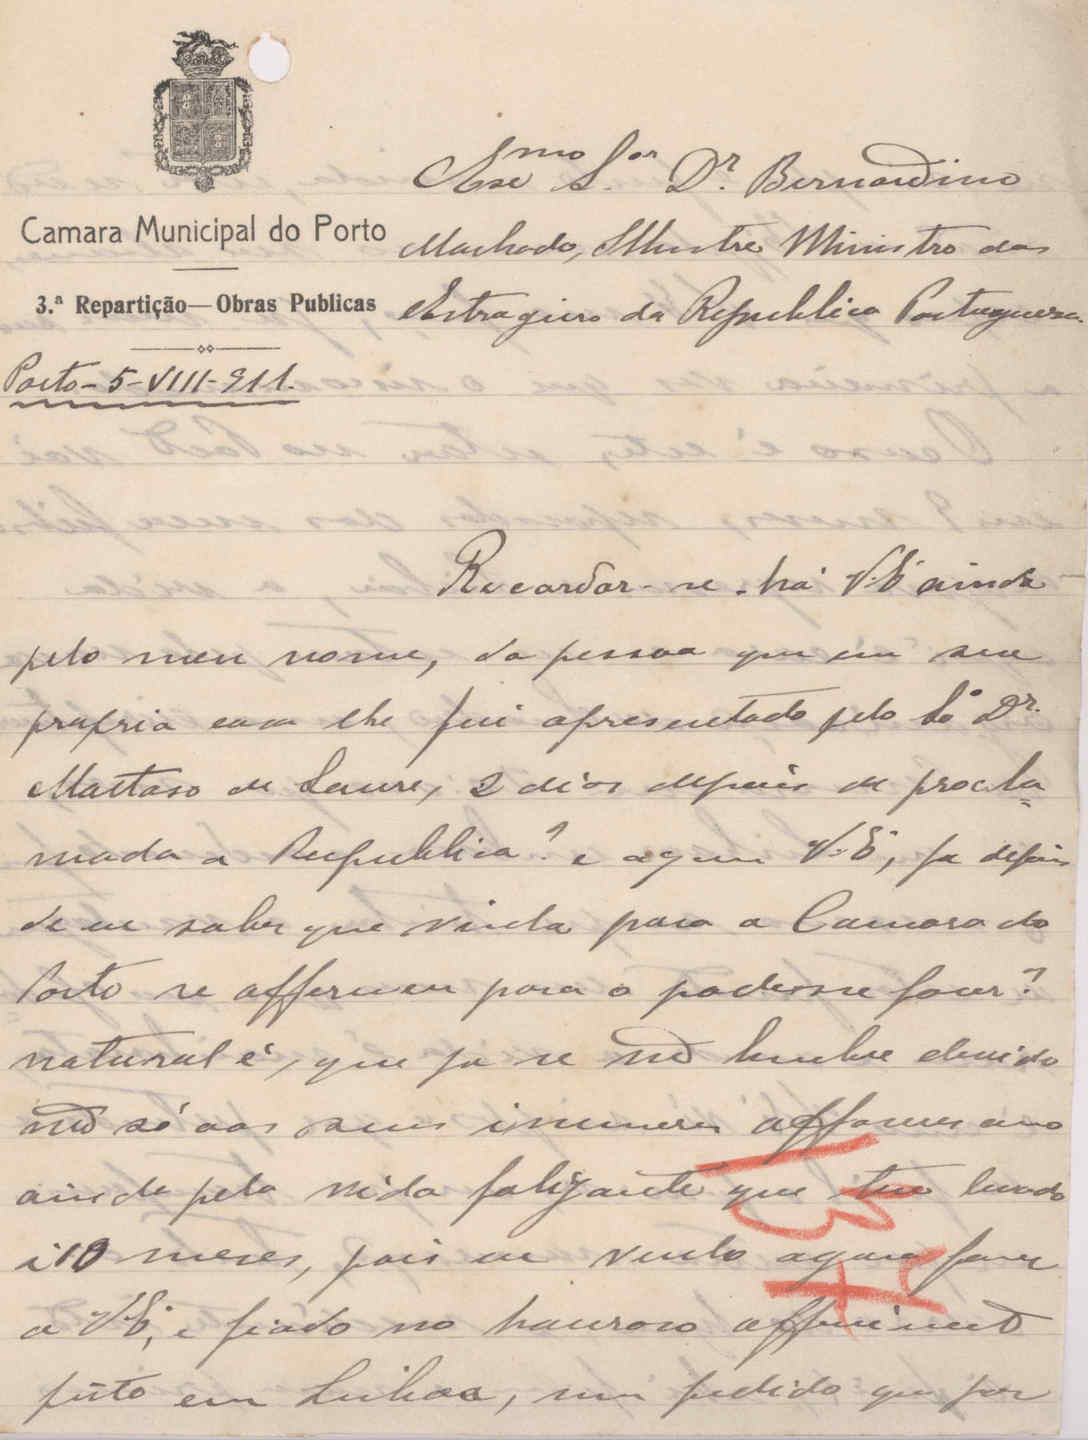 Camara Municipal do Porto
3.ª Repartição—Obras Publicas
Porto-5-VIII-911.
Exmo Sor Dr. Bernardino
Machado, Illustre Ministro dos
Estrageiros da Republica Portugueza
Recordar-se-há V.E ainda
pelo meu nome, da pessoa que em sua
propria casa lhe fui apresentado pelo Dr.
de 2 dias depois de procla=
mada a Republica? e a quem V.E, ja depois
de eu saber que vinha para a Camara do
Porto se para o podesse fazer?
natural é, que ja se não lembre devido
não só aos seus inumeros affazeres como
ainda pela vida fatigante que tem levado
i10 meses, pois eu venho agora fazer
a V.E, e fiado no honroso
feito em Lisboa, um pedido que por